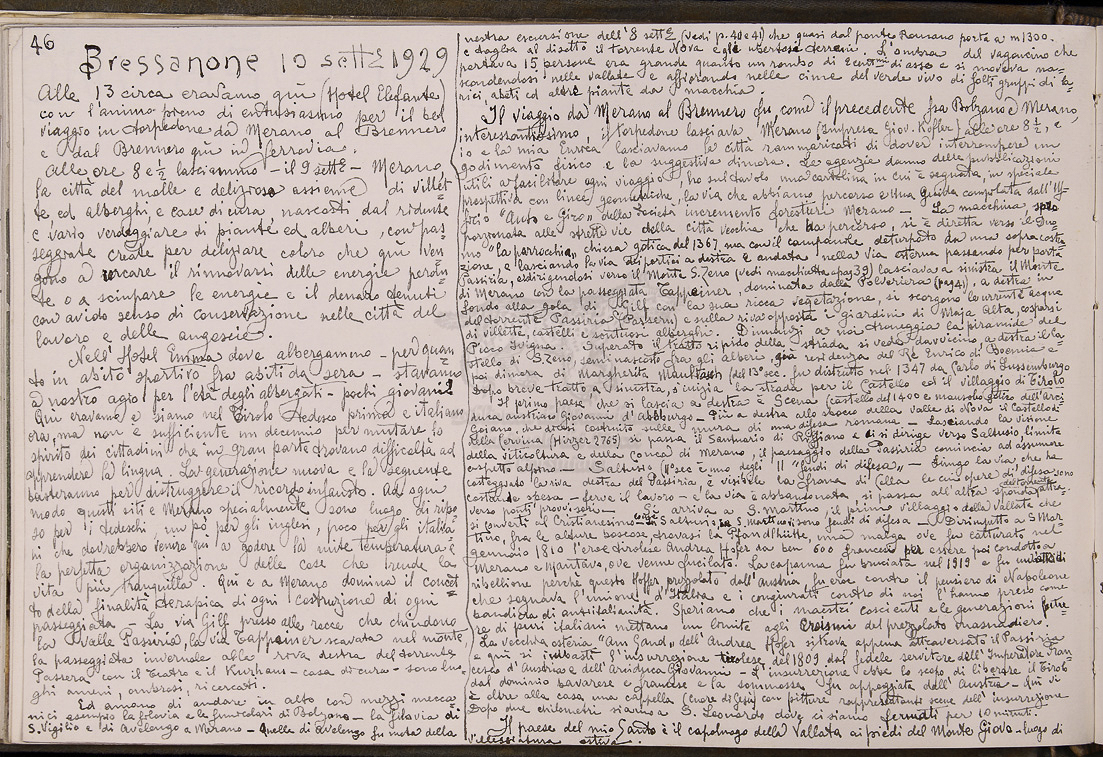 46
Bressanone 10 sett.e 1929
Alle 13 circa eravamo qui (Hotel Elefante)
con l'animo pieno di entusiasmo per il bel
viaggio in torpedone da Merano al Brennero
e dal Brennero qui in ferrovia.
Alle ore 8 e ½ lasciammo - il 9 sett.e - Merano
la città del molle e delizioso assieme di villet=
te, ed alberghi, e case di cura, nascosti dal ridente
e vario verdeggiare di piante ed alberi, con pas=
seggiate create per deliziare coloro che qui ven=
gono a cercare il rinnovarsi delle energie perdu=
te o a sciupare le energie e il denaro tenuti
con avido senso di conservazione nelle città del
lavoro e delle angoscie.
Nell'Hotel Emma dove albergammo - per quan=
to in abito sportivo fra abiti da sera - stavamo
a nostro agio per l'età degli albergati - pochi giovani!
Qui eravamo e siamo nel Tirolo tedesco prima e italiano
ora, ma non è sufficiente un decennio per mutare lo
spirito dei cittadini che in gran parte trovano difficoltà ad
apprendere la lingua. La generazione nuova e la seguente
basteranno per distruggere il ricordo infausto. Ad ogni
modo questi siti e Merano specialmente sono luogo di ripo=
so per i tedeschi, un pò per gli inglesi, poco per gli italia=
ni che dovrebbero venire qui a godere la mite temperatura e
la perfetta organizzazione delle cose che rende la
vita più tranquilla. Qui e a Merano domina il concet=
to della finalità terapica di ogni costruzione di ogni
passeggiata - La via Gilf presso alle rocce che chiudono
la Valle Passiria, la via Tappeiner scavata nel monte
la passeggiata invernale alla riva destra del torrente
Passera con il Teatro e il Kurhaus - casa di cura - sono luo=
ghi ameni, ombrosi, ricercati.
Ed amano di andare in alto con mezzi mecca=
nici esempio la filovia e le funicolari di Bolzano - la filovia di
S. Vigilio e di Avelengo a Merano - Quella di Avelengo fu meta della
nostra escursione dell'8 sett.e (vedi p. 40 e 41) che quasi dal ponte Romano porta a m 1300.
e taglia al disotto il torrente Nova e gli ubertose terreni. L'ombra del vagoncino che
portava 15 persone era grande quanto un rombo di centm di asse e si moveva na=
scondendosi nelle vallate e affiorando nelle cime del verde vivo di folti gruppi di la=
rici, abeti ed altre piante da macchia.
Il viaggio da Merano al Brennero fu come il precedente fra Bolzano e Merano,
interessantissimo. Il torpedone lasciava Merano (Impresa Giov. Kofler) alle ore 8 ½, e
io e la mia Enrica lasciavamo la città rammaricati di dover interrompere un
godimento fisico e la suggestiva dimora. Le agenzie danno delle pubblicazioni
utili a facilitare ogni viaggio, ho sul tavolo una cartolina in cui è segnata, in speciale
prospettiva con linee geometriche, la via che abbiamo percorso e una Guida compilata dall'Uf=
ficio "Auto e Giro" della Società incremento forestieri Merano - La macchina spro
porzionata alle strette vie della città vecchia che ha percorso, si è diretta verso il Duo=
mo "la parrocchia, chiesa gotica del 1367, ma con il campanile deturpato da una sopracostru=
zione, e lasciando la via dei portici a destra è andata nella via esterna passando per porta
Passiria, e dirigendosi verso il Monte S. Zeno (vedi macchietta a pag 39) lasciava a sinistra il Monte
di Merano con la passeggiata Tappeiner, dominata dalla Polveriera (pag 41), a destra in
fondo alla gola di Gilf con la sua ricca vegetazione, si scorgono le urrenti acque
del torrente Passirio (Passer) e sulla riva opposta i giardini di Maja Alta, cosparsi
di villette, castelli e sontuosi alberghi. Dinnanzi a noi troneggia la piramide del
Picco Ivigna. Superato il tratto ripido della strada si vede da vicino a destra il Ca=
stello di S. Zeno, seminascosto fra gli alberi, già residenza del Re Enrico di Boemia e
poi dimora di Margherita Maultasch (del 13° sec. fu distrutto nel 1347 da Carlo di Lussemburgo
Dopo breve tratto a sinistra, s'inizia la strada per il Castello ed il villaggio di Tirolo
Il primo paese che si lascia a destra è Scena (castello del 1400 e mausoleo gotico dell'arci
duca austriaco Giovanni d'Absburgo - Più a destra allo sbocco della valle di Nova il Castello di
Goiano, che dicesi costruito sulle mura di una difesa romana - Lasciando la veduta
della Cervina (Hirzer 2765) si passa il Santuario di Rifiano e si dirige verso Saltusio, limite
della viticoltura e della Conca di Merano, il paesaggio della Passiria comincia ad assumere
aspetto alpino - Saltusio (11° sec è uno degli 11 "feudi di difesa" - Lungo la via che ha
costeggiato la riva destra del Passiria, è visibile la frana di Cella le cui opere d'difesa sono
costate spesa - ferve il lavoro - e la via è abbandonata, si passa all'altra sponda
verso ponti provvisori - Si arriva a S. Martino, il primo villaggio della Vallata che
si convertì al Cristianesimo - come Saltusio, S. Martino vi sono feudi di difesa - Dirimpetto a S Mar
tino, fra le alture boscose, trovasi la Pfandlhütte, una malga ove fu catturato nel
gennaio 1810 l'eroe tirolese Andrea Hofer da ben 600 francesi per essere poi condotto a
Merano e Mantova, ove venne fucilato. La capanna fu bruciata nel 1919 e fu
ribellione perchè questo Hoffer prezzolato dall'Austria fu eroe contro il pensiero di Napoleone
che sognava l'unione d'Italia e i congiurati contro di noi l'hanno preso come
bandiera di antiitalianità. Speriamo che i maestri coscienti e le generazioni futu=
re di puri italiani mettano un limite agli eroismi del prezzolato masnadiero.
La vecchia osteria "Am Sand" dell'Andrea Hofer si trova appena attraversato il Passiria
e qui si imbastì l'insurrezione tirolese del 1809 dal fedele servitore dell'Imperatore Fran=
cesco d'Austria e dell'arciduca Giovanni - L'insurrezione ebbe lo scopo di liberare il Tirolo
dal dominio bavarese e francese e la sommossa fu appoggiata dall'Austria - qui vi
è oltre alla casa una cappella (Cuore di Gesù) con pitture rappresentanti scene dell'insurrezione
Dopo due chilometri siamo a S. Leonardo dove ci siamo fermati per 10 minuti.
Il paese del mio Santo è il capoluogo della Vallata ai piedi del Monte Giovo - luogo di
villeggiatura estiva.